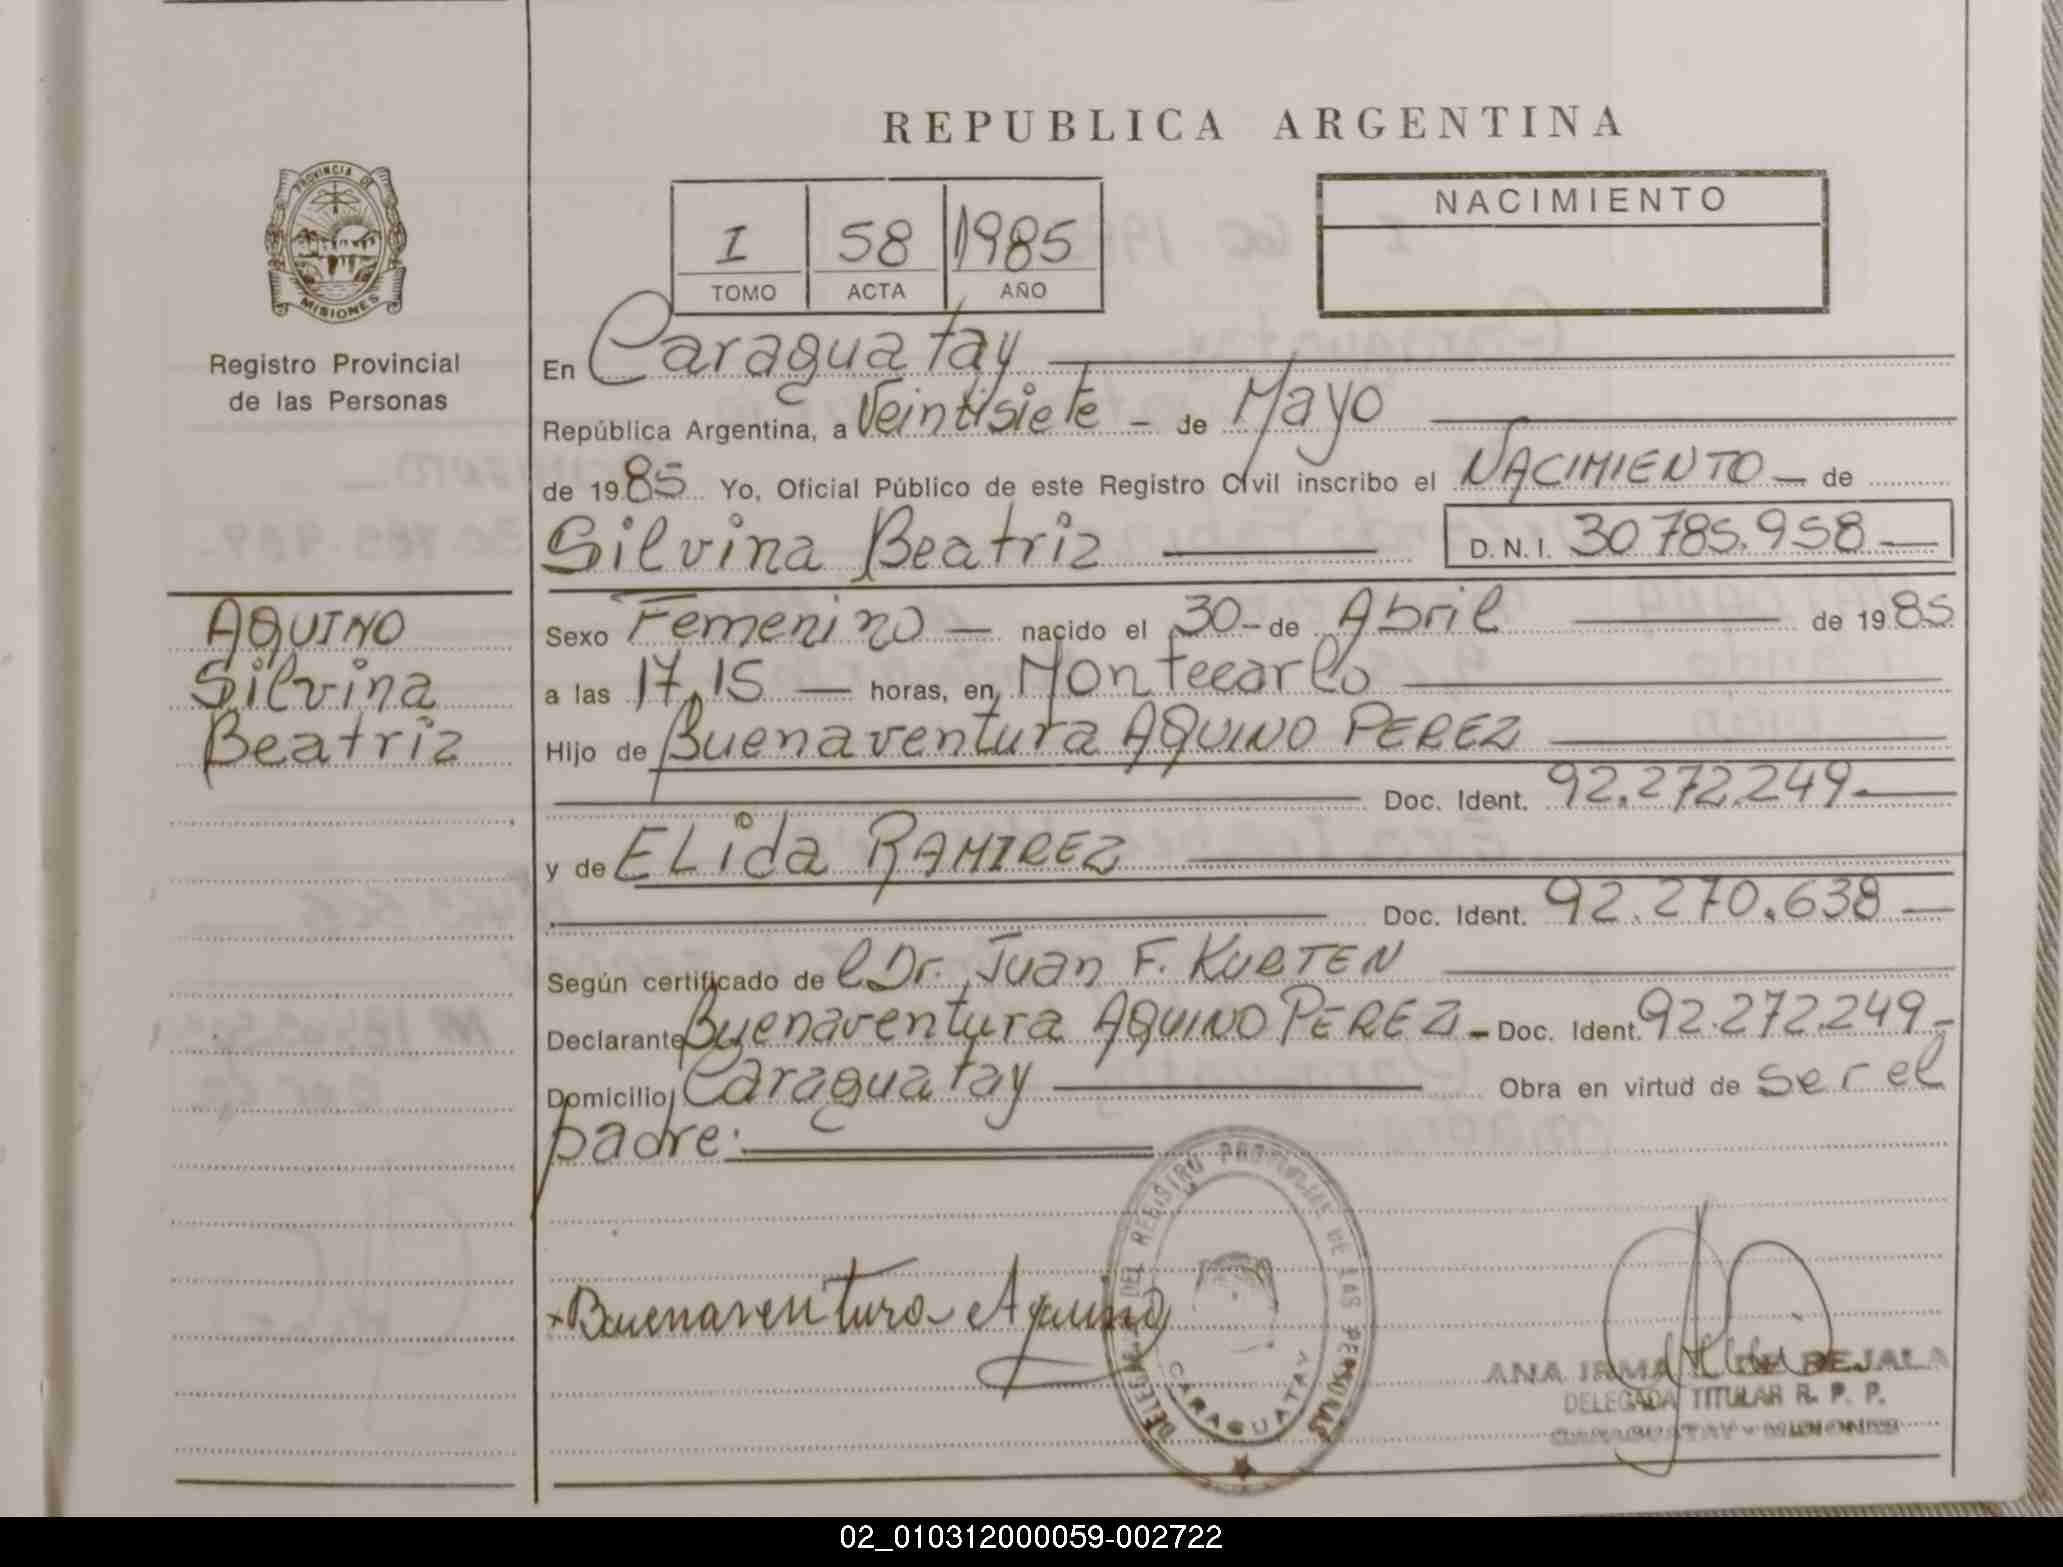 REPUBLICA ARGENTINA
PROVINCIA DE
MISIONES
Registro Provincial
de las Personas
I 58 1985
TOMO ACTA AÑO
NACIMIENTO
En Caraguatay
República Argentina, a Veintisiete - de Mayo
de 1985 Yo, Oficial Público de este Registro Civil inscribo el NACIMIENTO - de
Silvina Beatriz D.N.I. 30 785.958 -
AQUINO
Silvina
Beatriz
Sexo Femenino - nacido el 30 - de Abril de 1985
a las 17,15 - horas, en Montecarlo
Hijo de Buenaventura AQUINO PEREZ
Doc. Ident. 92.272.249 -
y de ELida RAMIREZ
Doc. Ident. 92.270.638 -
Según certificado de el Dr. Juan F. KURTEN
Declarante Buenaventura AQUINO PEREZ - Doc. Ident. 92.272.249 -
Domicilio Caraguatay Obra en virtud de ser el
padre:
DEL REGISTRO PROVINCIAL DE LAS PERSONAS
CARAGUATAY
Buenaventura Aquino
ANA IRMA BEJALA
DELEGADA TITULAR R. P. P.
CARAGUATAY - MISIONES
02_010312000059-002722